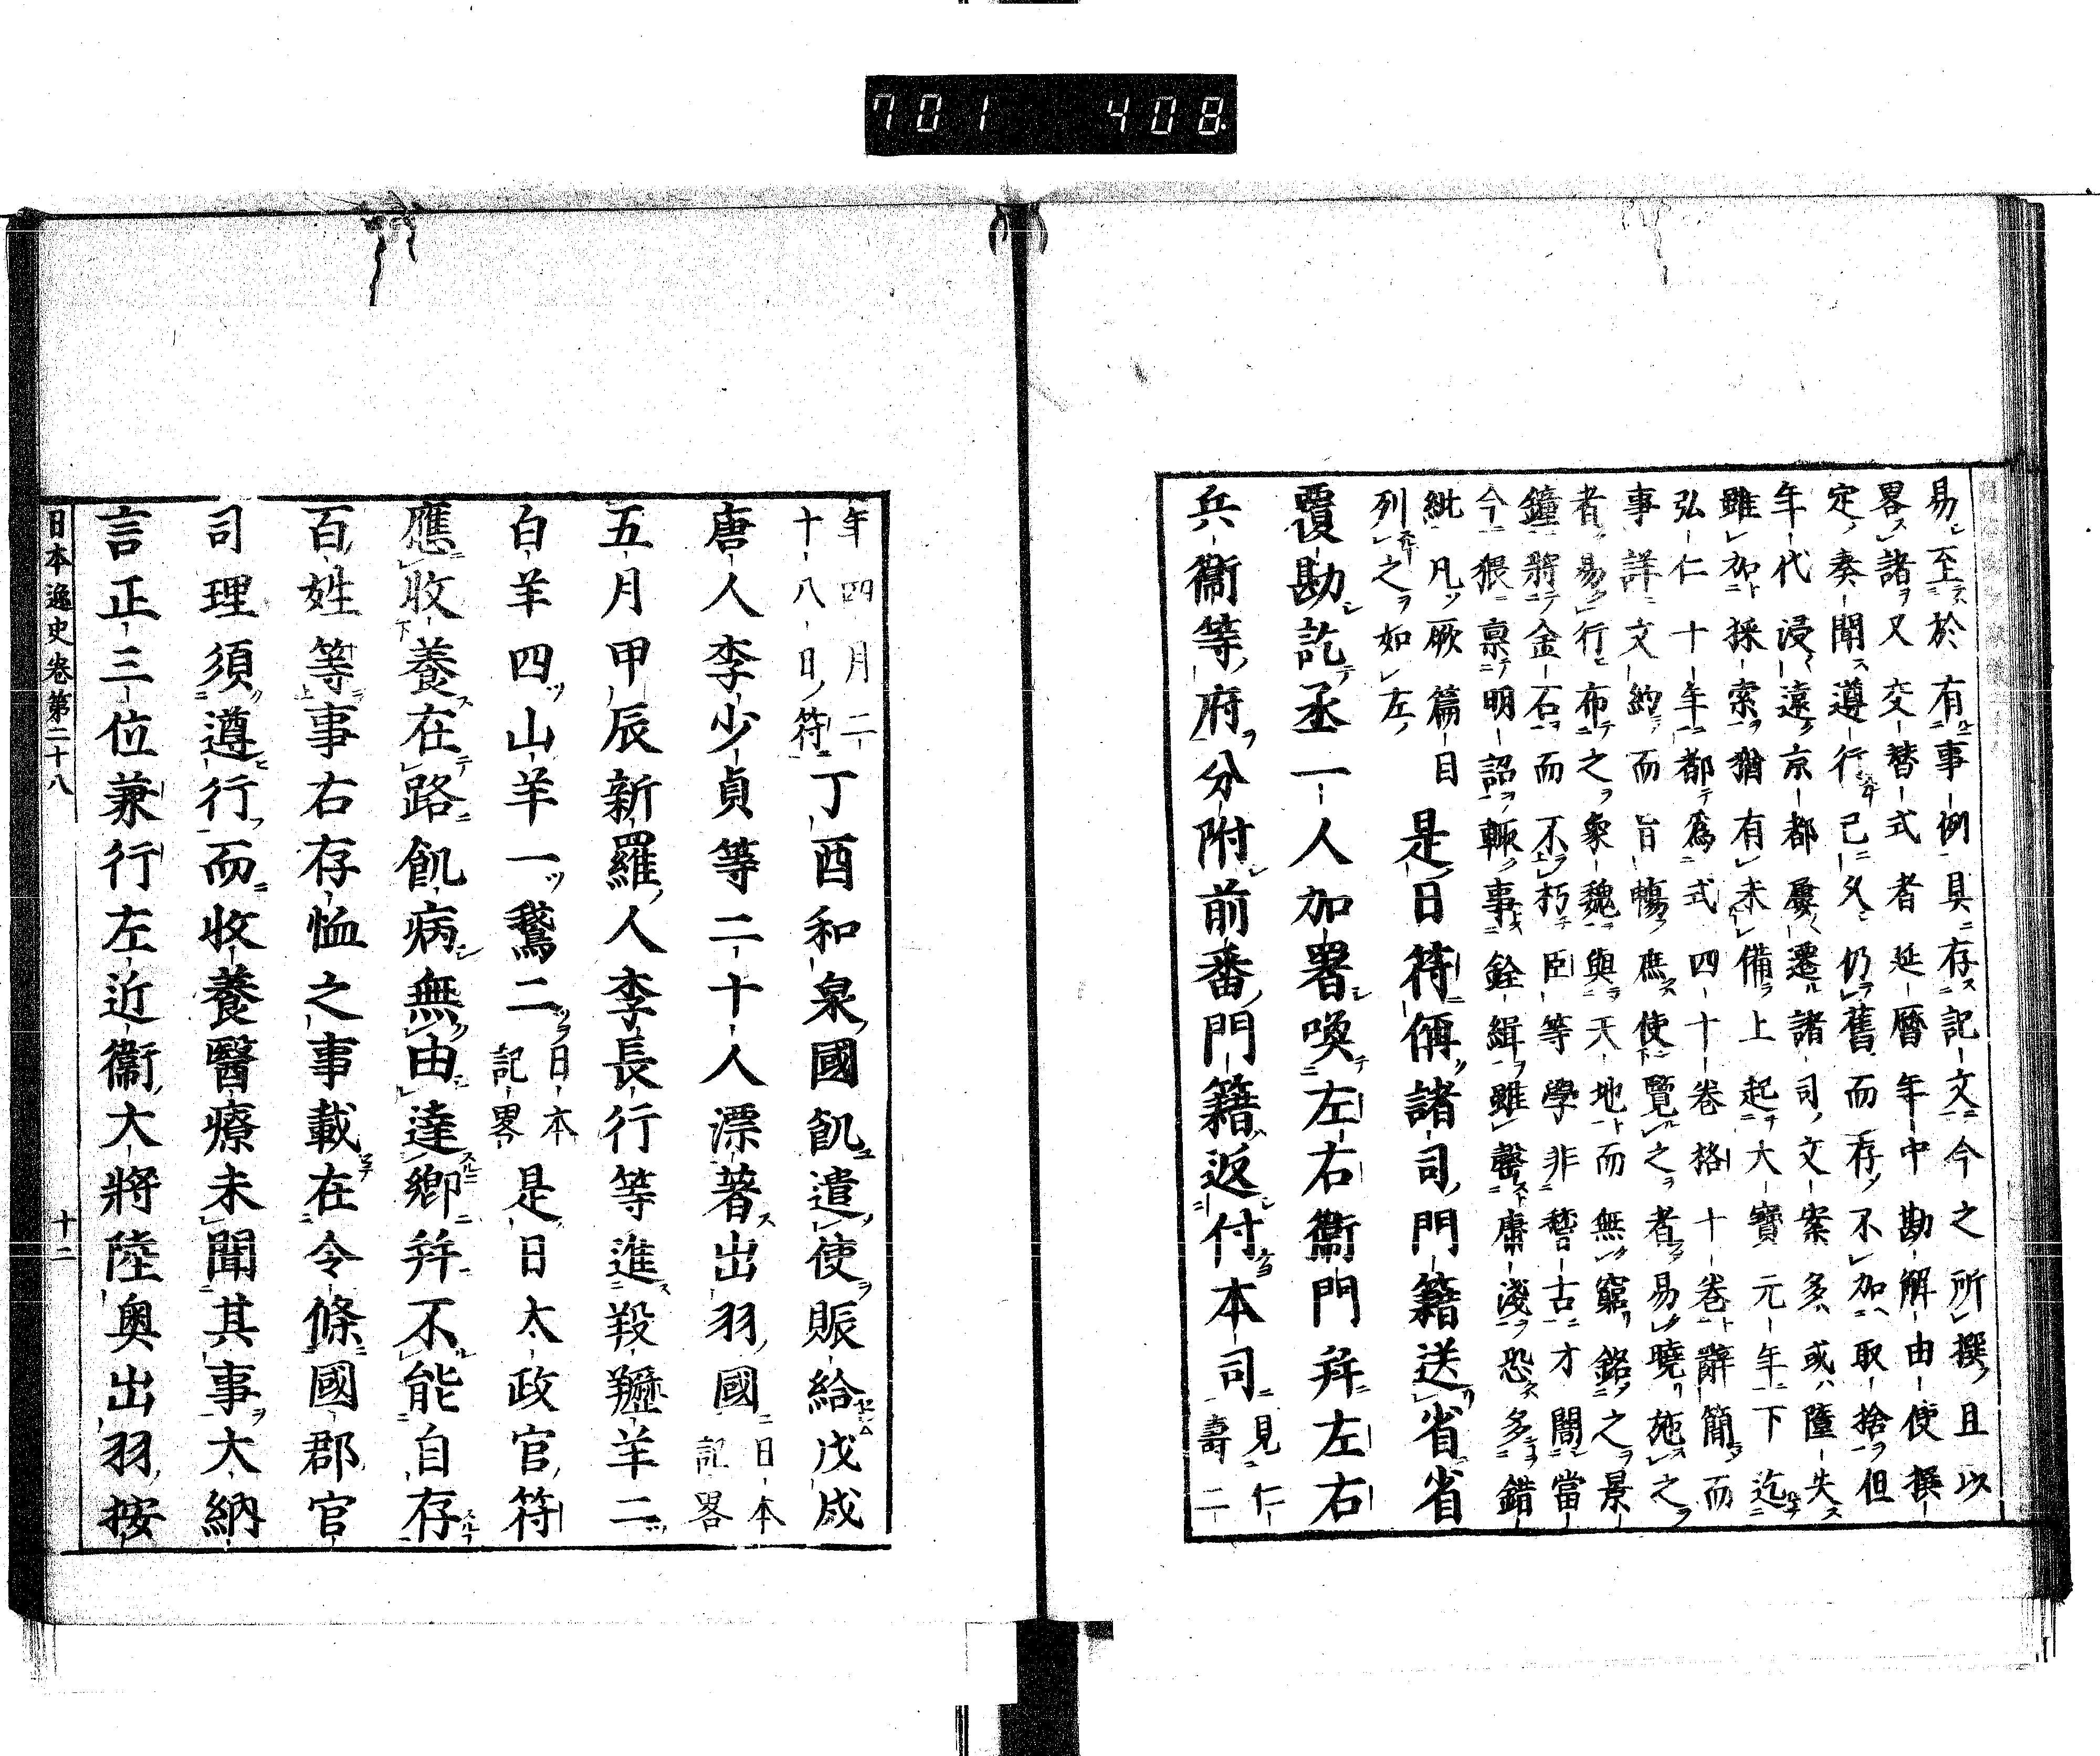 701 408
易至於有事例具存記文今之所撰且以
畧諸又交替式者延曆年中勘解由使撰
定奏聞遵行已久仍舊而存不加取捨但
年代浸遠京都屢遷諸司文案多或墮失
雖加採索猶有未備上起大寶元年下迄
弘仁十年都爲式四十卷格十卷辭簡而
事詳文約而旨暢庶使覽之者易曉施之
者易行布之象魏與天地而無窮銘之景
鐘將金石而不朽臣等學非稽古才闇當
今猥稟明詔輙事銓緝雖罄庸淺恐多錯
紕凡厥篇目
列之如左
是日符偁諸司門籍送省省
覆勘訖丞一人加署喚左右衞門并左右
兵衞等府分附前番門籍返付本司
見仁
壽二
年四月二
十八日符
丁酉和泉國飢遣使賑給戊戌
唐人李少貞等二十人漂著出羽國
日本
記畧
五月甲辰新羅人李長行等進羖䍽羊二
白羊四山羊一鵞二
日本
記畧
是日太政官符
應收養在路飢病無由達鄉并不能自存
百姓等事右存恤之事載在令條國郡官
司理須遵行而收養醫療未聞其事大納
言正三位兼行左近衞大將陸奧出羽按
日本逸史卷第二十八
十二